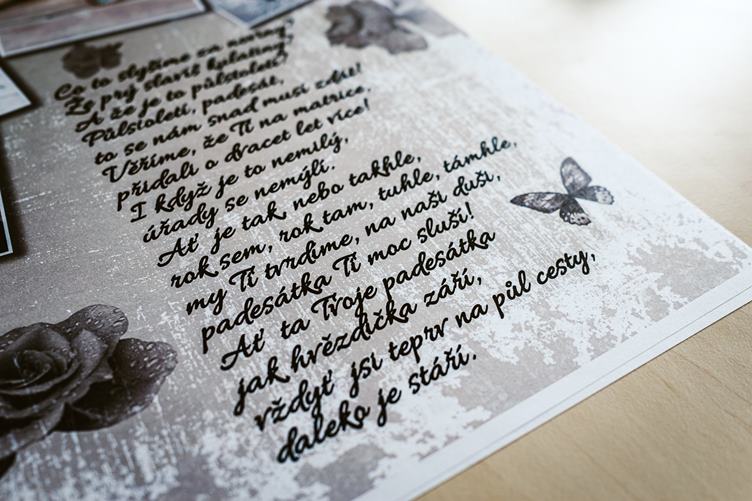 Co to slyšíme za noviny?
Že prý slavíš kulatiny?
A že je to půlstoletí?
Půlstoletí, padesát,
to se nám snad musí zdát!
Věříme, že Ti na matrice,
přidali o dvacet let více!
I když je to nemilý,
úřady se nemýlí.
Ať je tak nebo takhle,
rok sem, rok tam, tuhle, támhle,
my Ti tvrdíme, na naši duši,
padesátka Ti moc sluší!
Ať ta Tvoje padesátka
jak hvězdička září,
vždyť jsi teprv na půl cesty,
daleko je stáří.